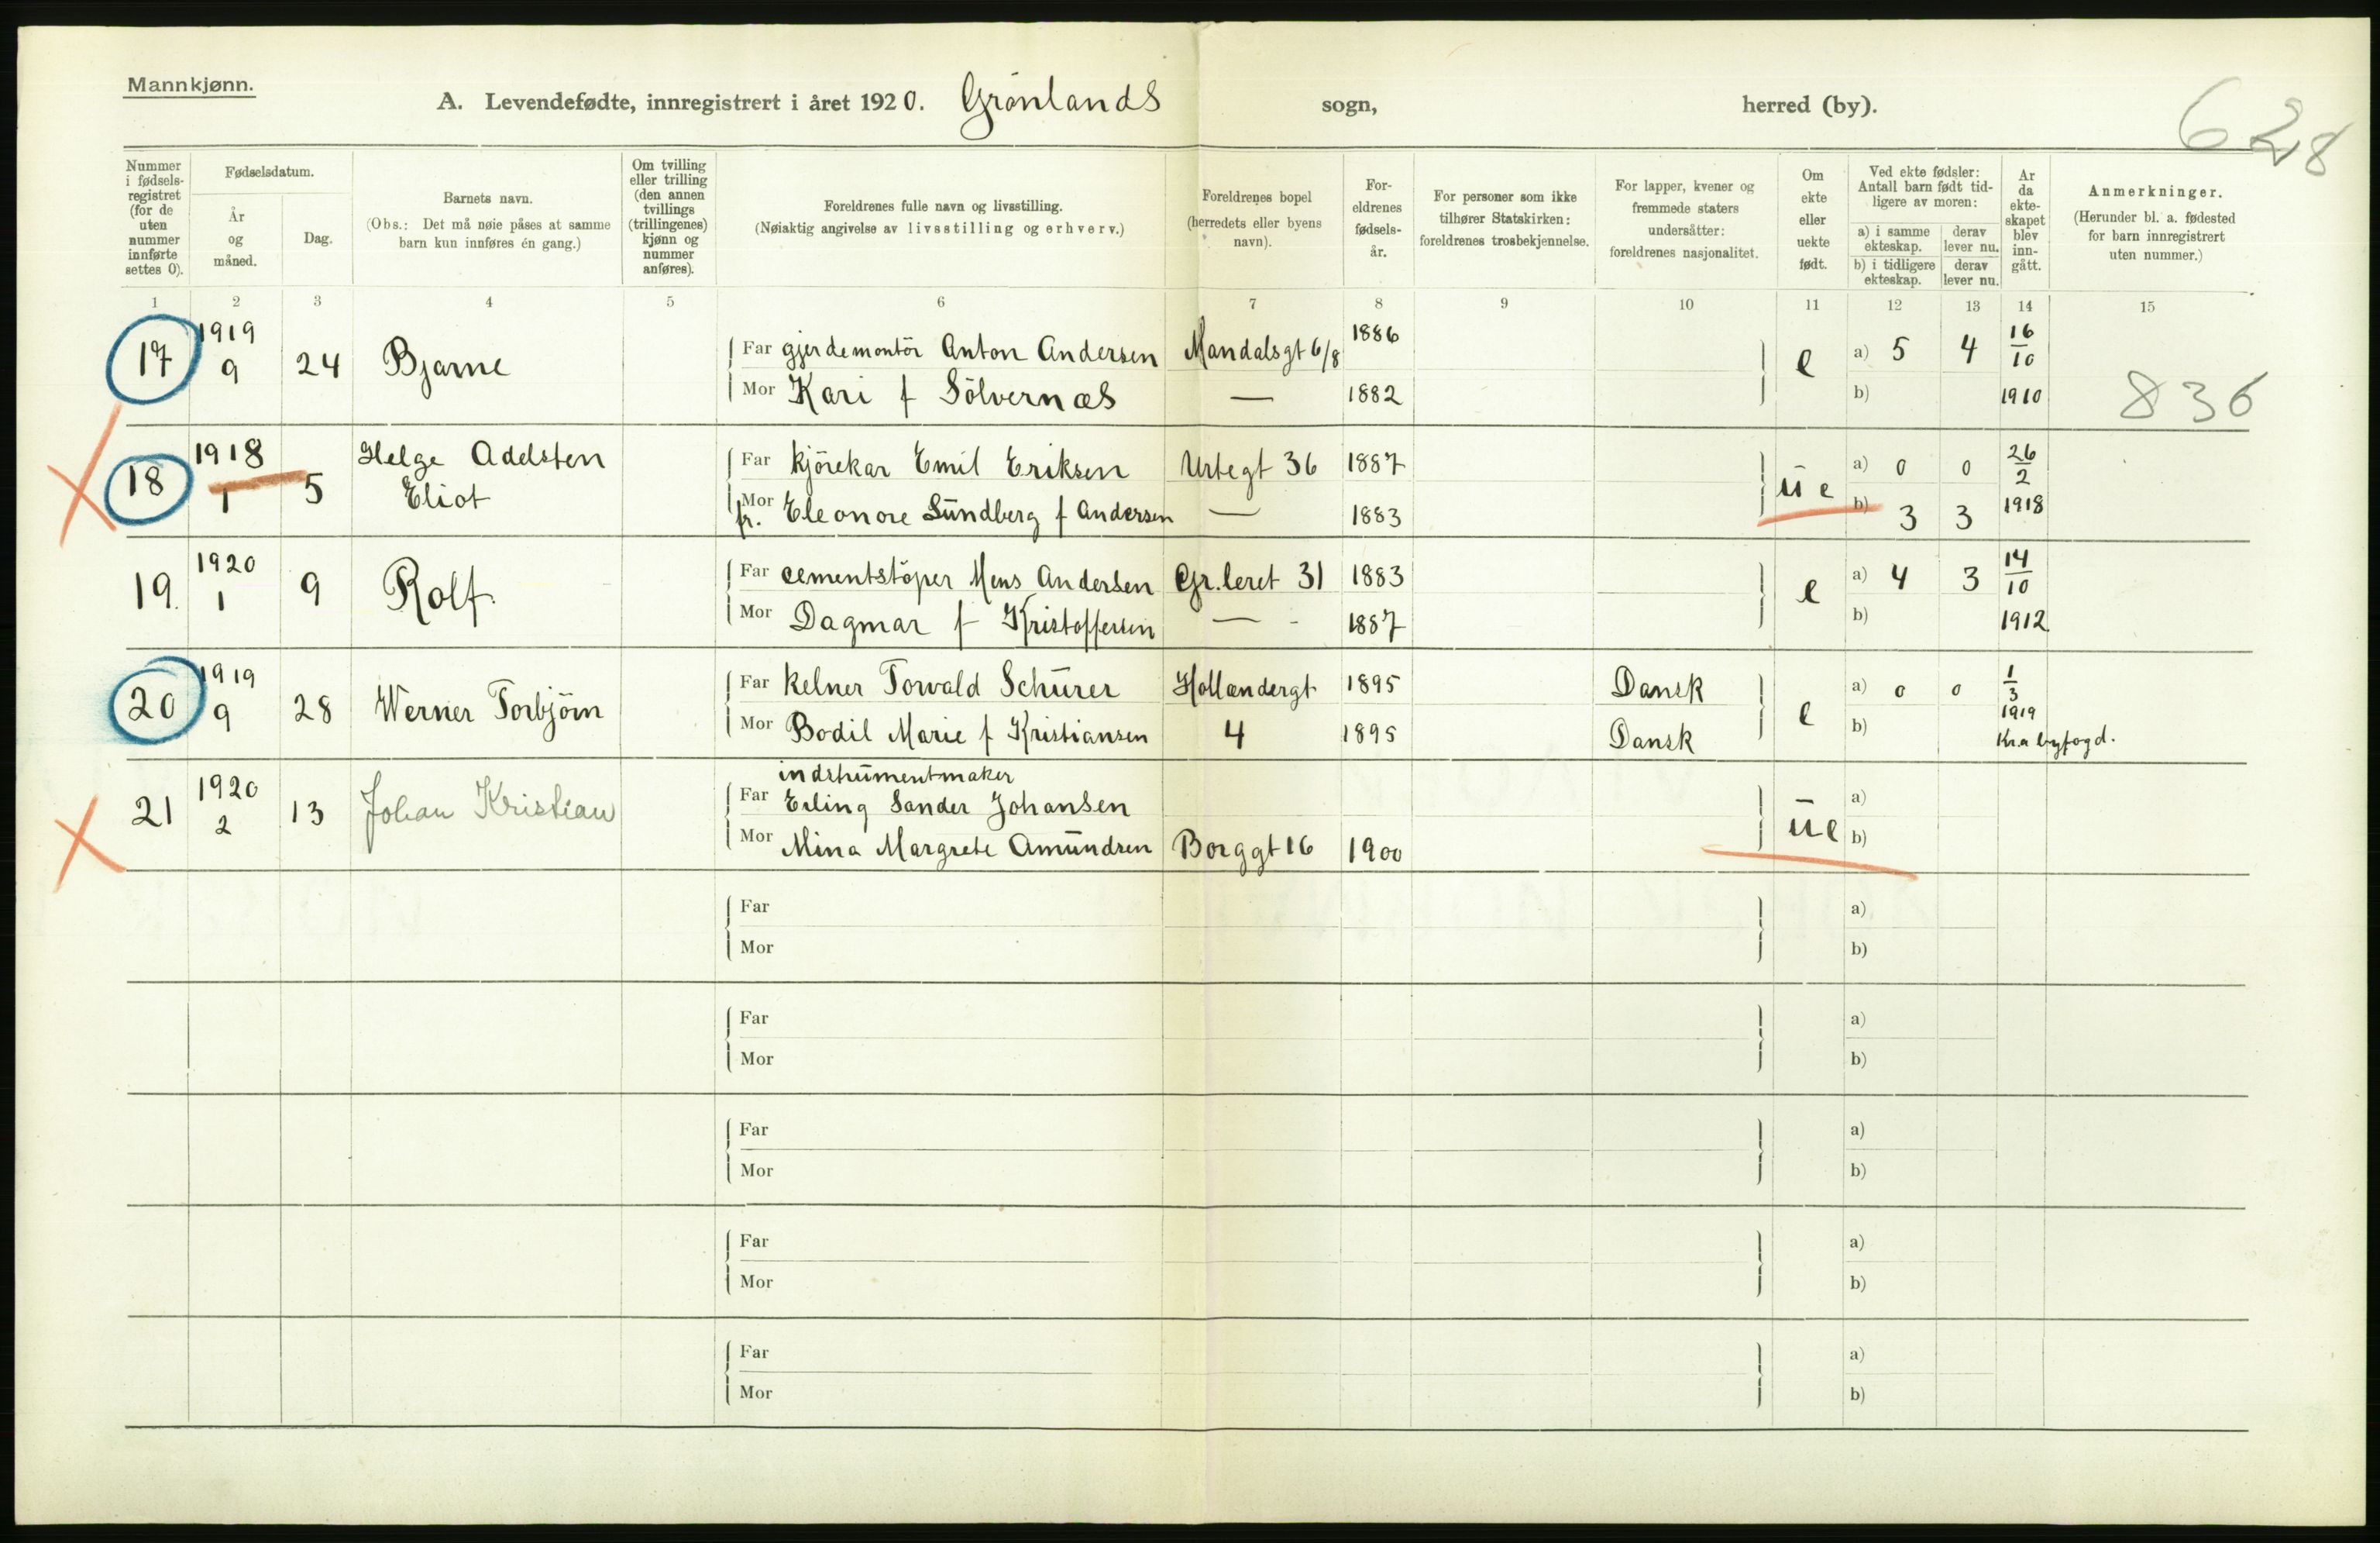 Mannkjønn.
A. Levendefødte, innregistrert i året 1920. Grönlands sogn, herred (by).
628
Nummer i fødsels-registret (for de uten nummer innførte settes 0).
Fødselsdatum.
År og måned.
Dag.
Barnets navn.
(Obs.: Det må nøie påses at samme barn kun innføres én gang.)
Om tvilling eller trilling (den annen tvillings (trillingenes) kjønn og nummer anføres).
Foreldrenes fulle navn og livsstilling.
(Nøiaktig angivelse av livsstilling og erhverv.)
Foreldrenes bopel (herredets eller byens navn).
For-eldrenes fødsels-år.
For personer som ikke tilhører Statskirken: foreldrenes trosbekjennelse.
For lapper, kvener og fremmede staters undersåtter: foreldrenes nasjonalitet.
Om ekte eller uekte født.
Ved ekte fødsler: Antall barn født tid-ligere av moren:
a) i samme ekteskap.
derav lever nu.
b) i tidligere ekteskap.
derav lever nu.
År da ekte-skapet blev inn-gått.
Anmerkninger.
(Herunder bl. a. fødested for barn innregistrert uten nummer.)
1 2 3 4 5 6 7 8 9 10 11 12 13 14 15
17 1919 9 24 Bjarne Far gjerdemontör Anton Andersen Mandalsgt 6/8 1886 e a) 5 4 16/10
Mor Kari f Sölvernæs — 1882 b) 1910 836
18 1918 1 5 Helge Adelsten Far kjörekar Emil Eriksen Urtegt 36 1887 ūe a) 0 0 26/2
Eliot Mor fr. Eleonore Sūndberg f Andersen — 1883 b) 3 3 1918
19. 1920 1 9 Rolf. Far cementstöper Mens Andersen Gr.leret 31 1883 e a) 4 3 14/10
Mor Dagmar f Kristoffersen — - 1887 b) 1912
20 1919 9 28 Werner Torbjörn Far kelner Torvald Schürer Hollændergt 1895 Dansk e a) 0 0 1/3
Mor Bodil Marie f Kristiansen 4 1895 Dansk b) 1919
Kra byfogd.
21 1920 2 13 Johan Kristian indstrūmentmaker
Far Erling Sander Johansen ūe a)
Mor Mina Margrete Amūndsen Borggt 16 1900 b)
Far a)
Mor b)
Far a)
Mor b)
Far a)
Mor b)
Far a)
Mor b)
Far a)
Mor b)